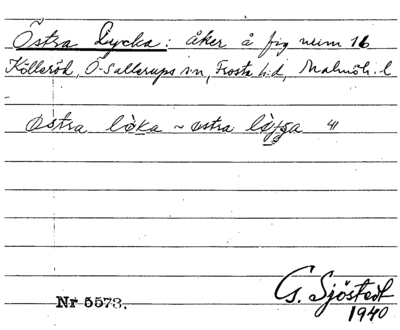 Östra Lycka: åker å fig num 16
Kölleröd, Ö-Sallerups s:n, Frosta h.d, Malmöh. l
östra lòka ~ östra lò
Nr 5573.
G. Sjöstedt
1940